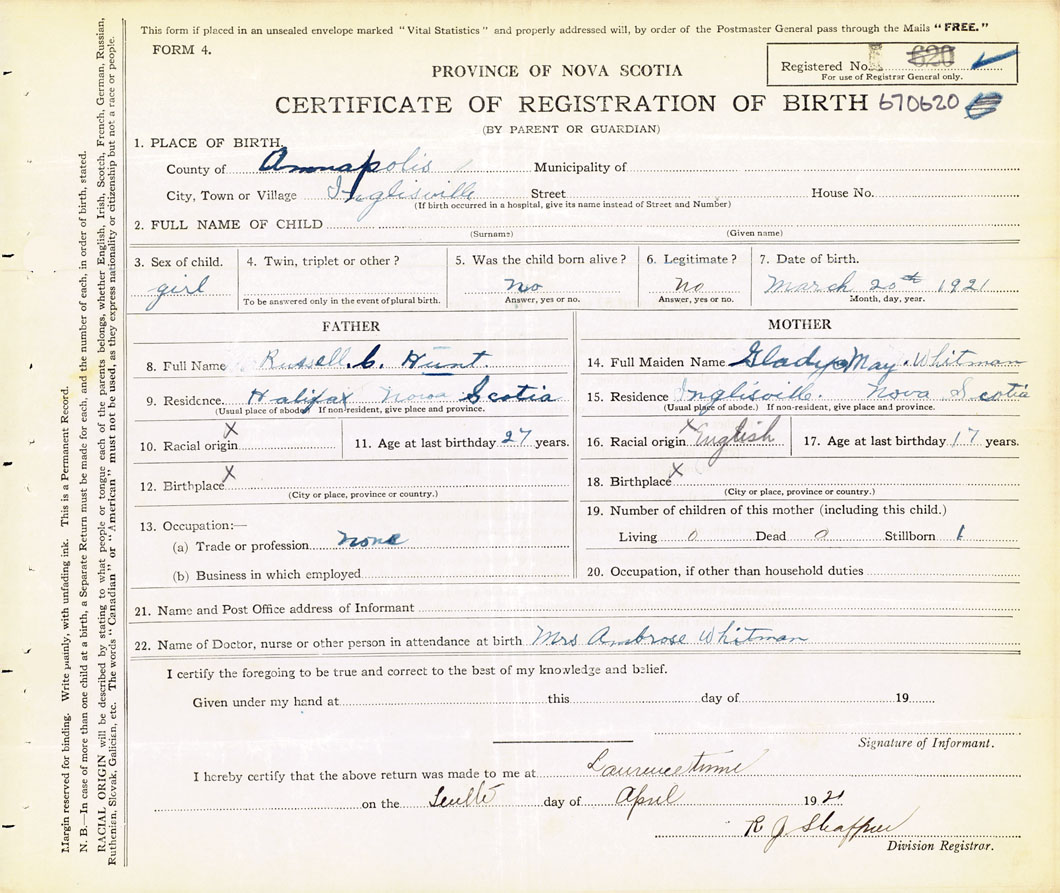 This form if placed in an unsealed envelope marked "Vital Statistics" and properly addressed will, by order of the Postmaster General pass through the Mails "FREE."
FORM 4.
Registered No. 620
For use of Registrar General only.
PROVINCE OF NOVA SCOTIA
CERTIFICATE OF REGISTRATION OF BIRTH 670620
(BY PARENT OR GUARDIAN)
1. PLACE OF BIRTH.
County of Annapolis Municipality of
City, Town or Village Inglisville Street House No.
(If birth occurred in a hospital, give its name instead of Street and Number)
2. FULL NAME OF CHILD
(Surname) (Given name)
3. Sex of child. 4. Twin, triplet or other? 5. Was the child born alive? 6. Legitimate? 7. Date of birth.
girl No No March 20th 1921
To be answered only in the event of plural birth. Answer, yes or no. Answer, yes or no. Month, day, year.
FATHER
8. Full Name Russell. C. Hunt.
9. Residence. Halifax Nova Scotia
(Usual place of abode) If non-resident, give place and province.
10. Racial origin X 11. Age at last birthday 27 years.
12. Birthplace X
(City or place, province or country.)
13. Occupation:—
(a) Trade or profession none
(b) Business in which employed
MOTHER
14. Full Maiden Name Gladys May. Whitman
15. Residence Inglisville. Nova Scotia
(Usual place of abode.) If non-resident, give place and province.
16. Racial origin X English 17. Age at last birthday 17 years.
18. Birthplace X
(City or place, province or country.)
19. Number of children of this mother (including this child.)
Living 0 Dead 0 Stillborn 1
20. Occupation, if other than household duties
21. Name and Post Office address of Informant
22. Name of Doctor, nurse or other person in attendance at birth Mrs Ambrose Whitman
I certify the foregoing to be true and correct to the best of my knowledge and belief.
Given under my hand at this day of 19
Signature of Informant.
I hereby certify that the above return was made to me at Laurencetown
on the day of April 1921
R J Shaffner
Division Registrar.
Margin reserved for binding. Write plainly, with unfading ink. This is a Permanent Record.
N. B.—In case of more than one child at a birth, a Separate Return must be made for each, and the number of each, in order of birth, stated.
RACIAL ORIGIN will be described by stating to what people or tongue each of the parents belongs, whether English, Irish, Scotch, French, German, Russian,
Ruthenian, Slovak, Galician, etc. The words "Canadian" or "American" must not be used, as they express nationality or citizenship but not a race or people.